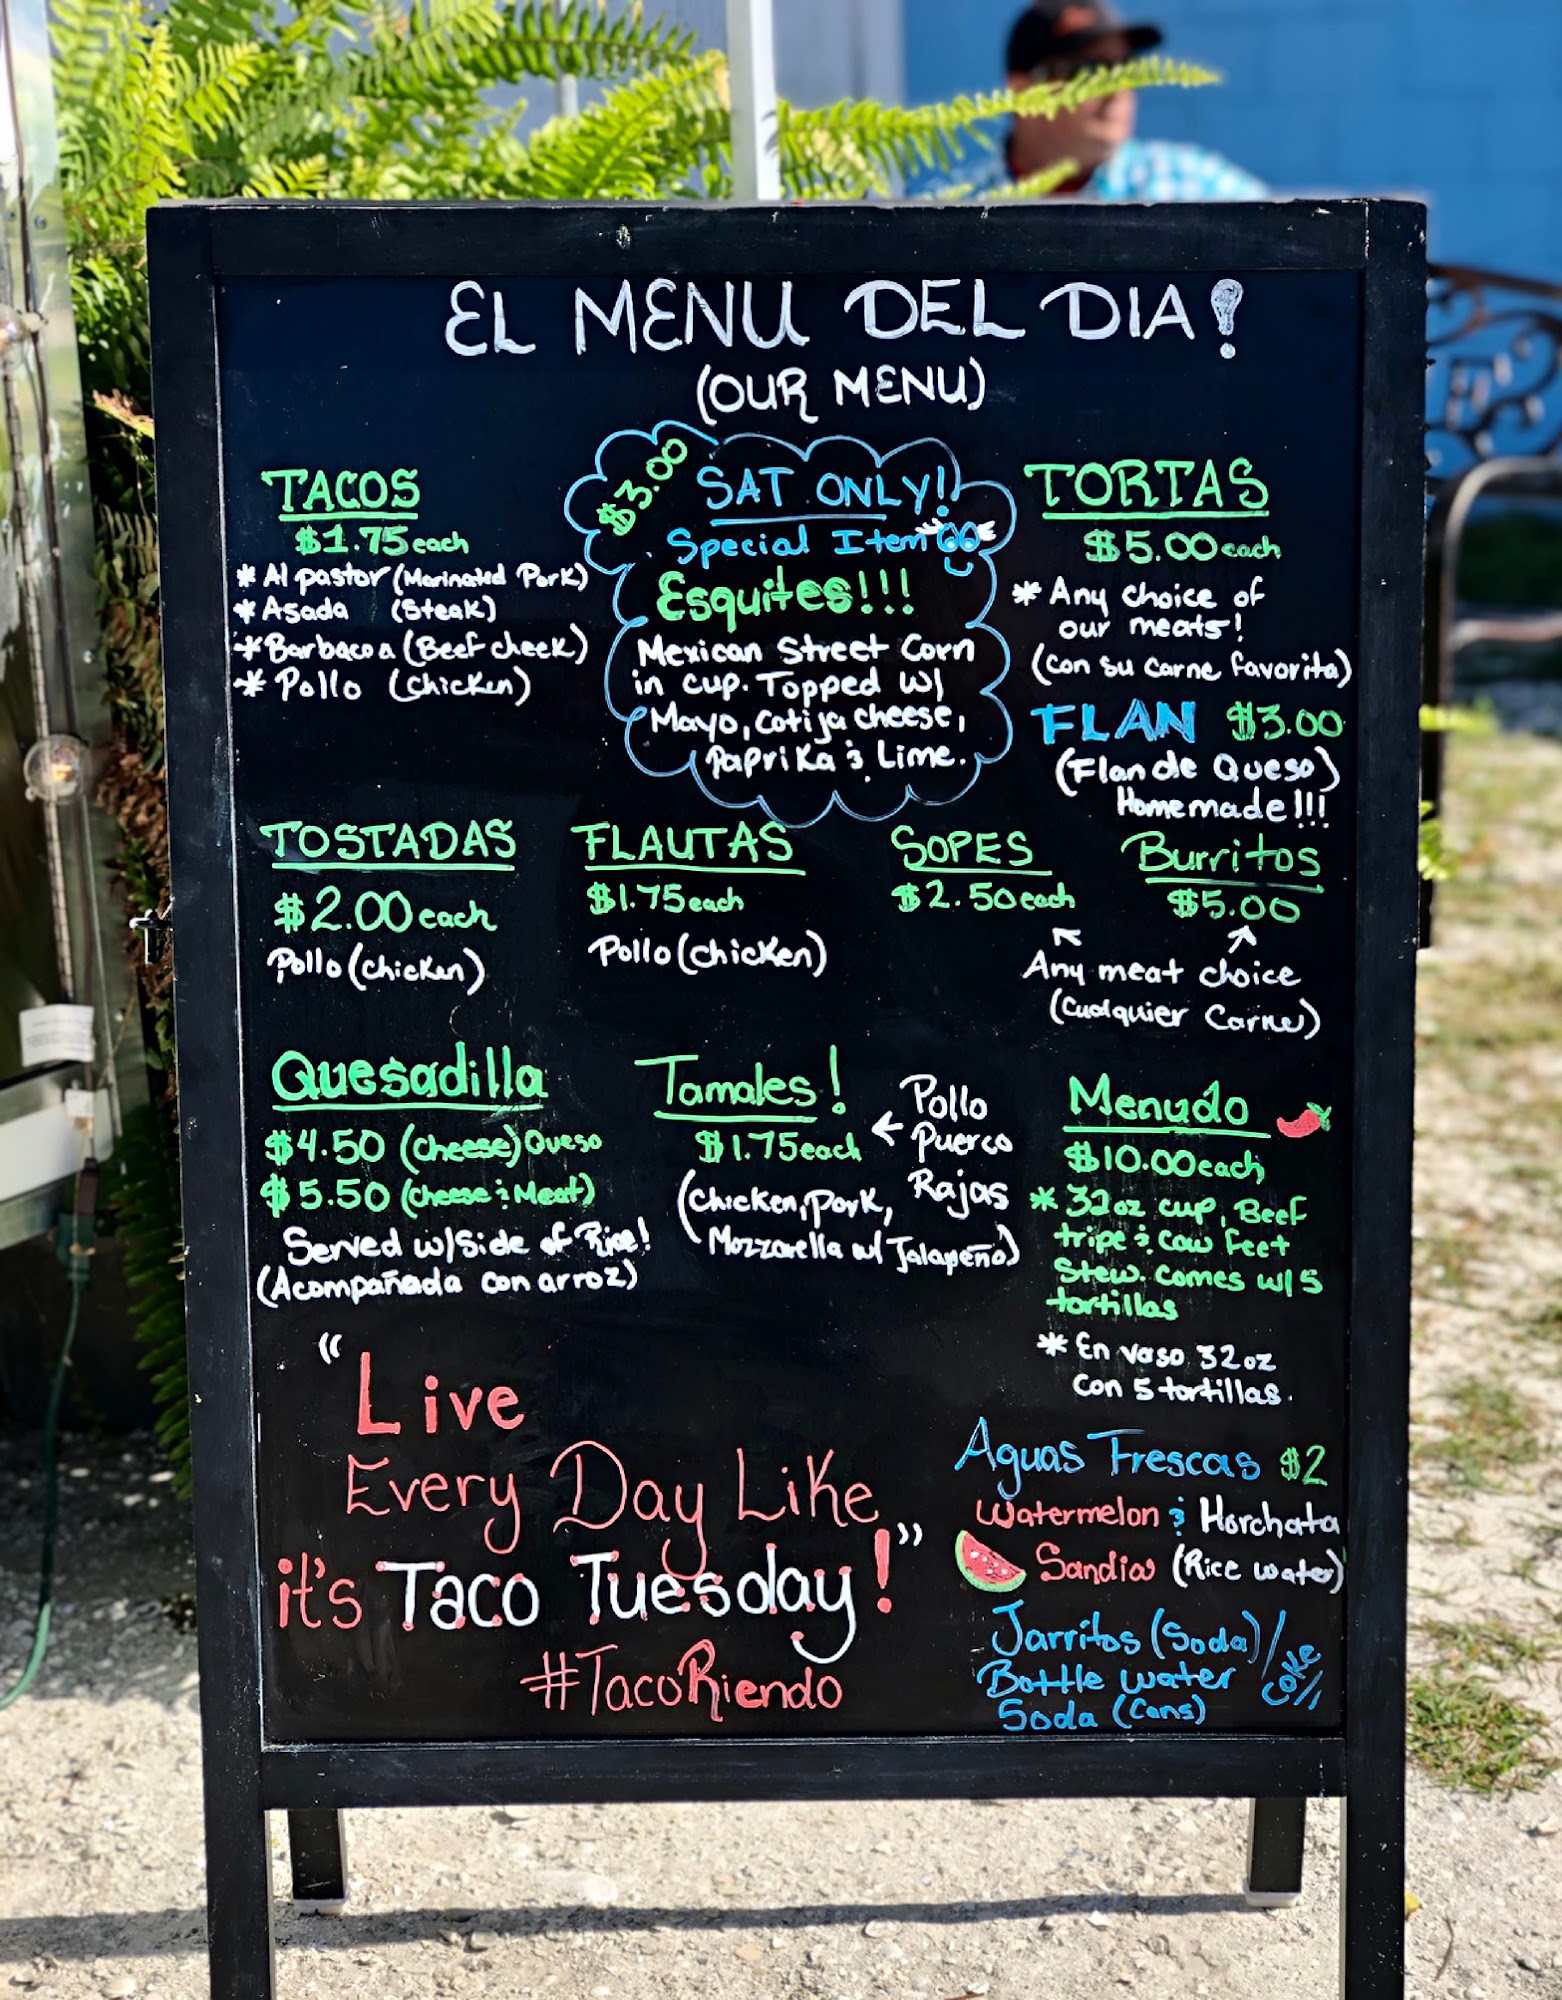 EL MENU DEL DIA!
(OUR MENU)
TACOS
$1.75 each
* Al pastor (Marinated Pork)
* Asada (Steak)
* Barbacoa (Beef cheek)
* Pollo (chicken)
$3.00
SAT ONLY!
Special Item
Esquites!!!
Mexican Street Corn
in cup. Topped w/
Mayo, cotija cheese,
Paprika & Lime.
TORTAS
$5.00 each
* Any choice of
our meats!
(con su carne favorita)
FLAN $3.00
(Flan de Queso)
Homemade!!!
TOSTADAS
$2.00 each
Pollo (chicken)
FLAUTAS
$1.75 each
Pollo (chicken)
SOPES
$2.50 each
Burritos
$5.00
Any meat choice
(Cualquier Carne)
Quesadilla
$4.50 (cheese) Queso
$5.50 (cheese & Meat)
Served w/side of Rice!
(Acompañada con arroz)
Tamales!
$1.75 each
← Pollo
Puerco
Rajas
(Chicken, Pork,
Mozzarella w/ Jalapeño)
Menudo
$10.00 each
* 32oz cup, Beef
tripe & cow feet
Stew. comes w/ 5
tortillas
* En vaso 32oz
con 5 tortillas.
"Live
Every Day Like
it's Taco Tuesday!"
#TacoRiendo
Aguas Frescas $2
Watermelon & Horchata
Sandia (Rice water)
Jarritos (Soda)/
Coke
Bottle water
Soda (Cans)